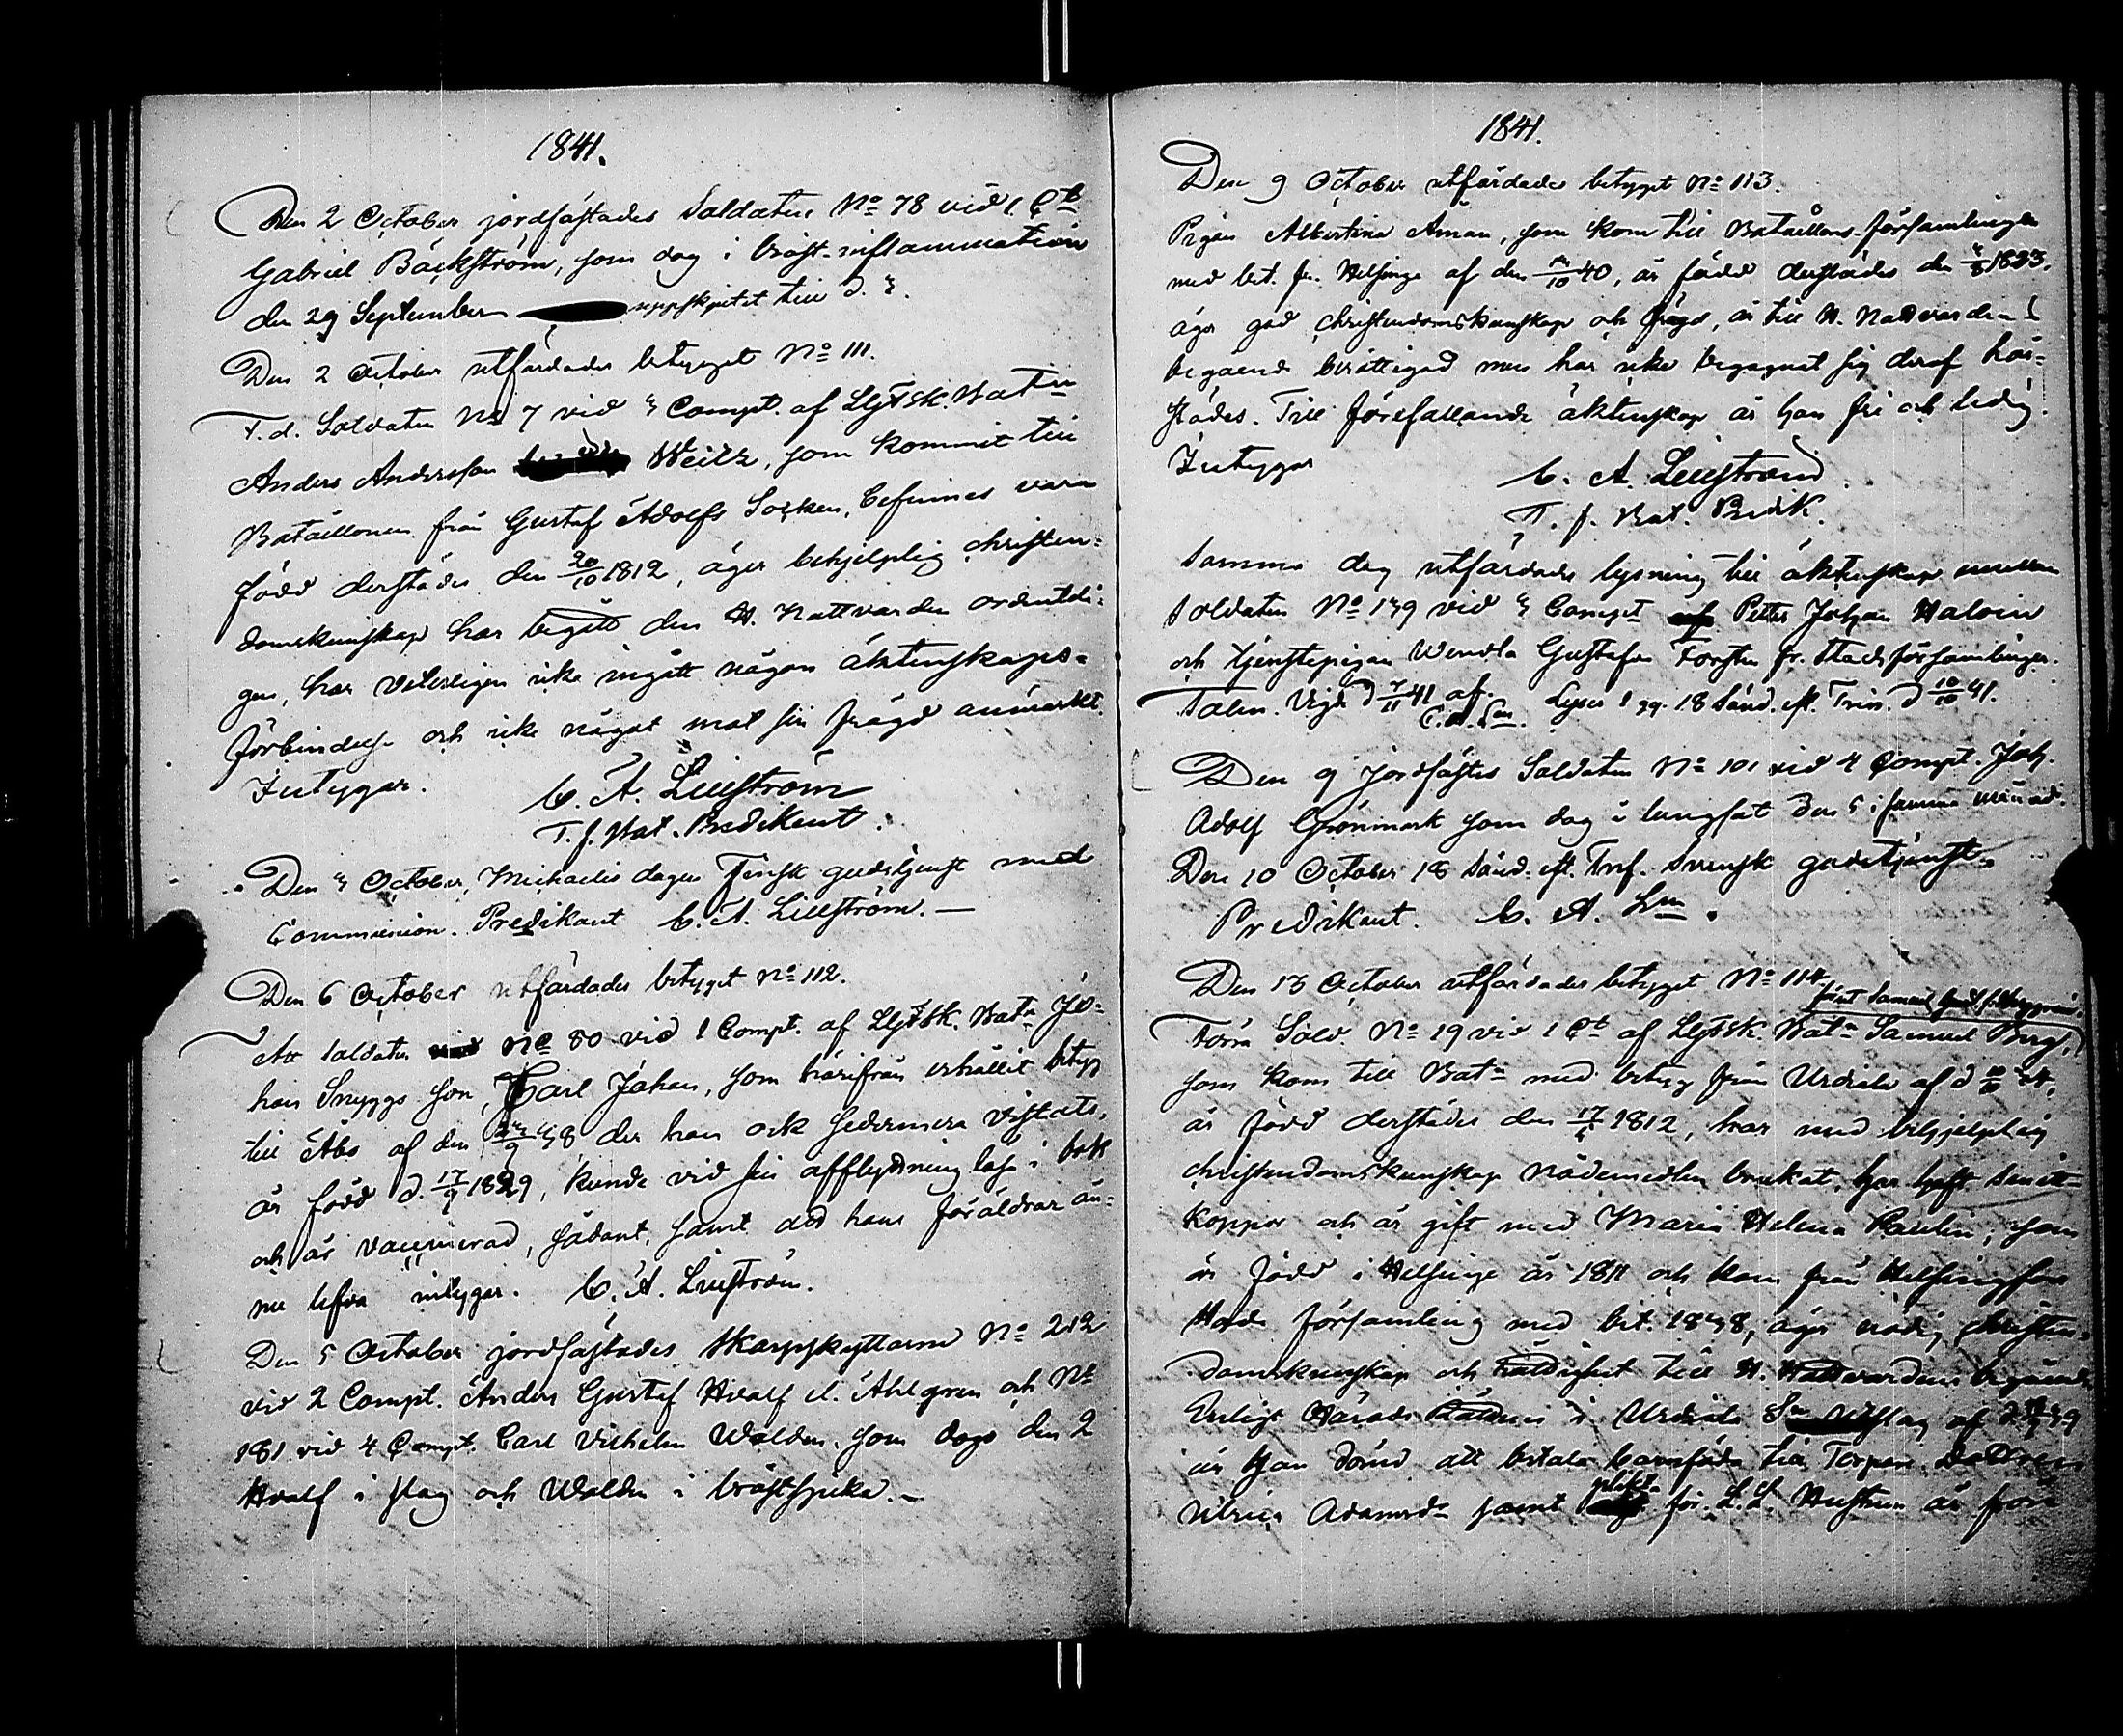 1841.
Den 2 October jordfästades Soldaten No 78 vid 1 Ct
Gabriel Bäckström, som dog i bröst-inflammation
den 29 September uppskjutet till d. 3.
Den 2 October utfärdades betyget No 111.
F.d. Soldaten No 7 vid 3 Compt. af Ljf Sk. Batn
Anders Andersson Weilz, som kommit till
Bataillonen från Gustaf Adolfs Socken, befinnes vara
född derstädes den 20/10 1812, äger behjelplig christen-
domskunskap har begått den H. Nattvarden ordentli-
gen, har veterligen icke ingått någon äktenskaps-
förbindelse och icke något mot sin frägd anmärkt.
Intygar.
C. A. Lillström
T. f. Bat. Predikant.
Den 3 October, Michaelis dagen Finsk gudstjenst med
Communion. Predikant C. A. Lillström.
Den 6 October utfärdades betyget No 112.
Att Soldaten No 80 vid 1 Compt. af Ljf Sk. Batn Jo-
han Snyggs son, Carl Johan, som härifrån erhållit betyg
till Åbo af den /9 38 der han ock sedermera vistats,
är född d. 17/9 1829, kunde vid sin afflyttning läsa i bok
och är vaccinerad, sådant, samt att hans föräldrar än-
nu lefva intygar. C. A. Lillström.
Den 5 October jordfästades Skarpskyttarne No 212
vid 2 Compt. Anders Gustaf Hvalf el. Ahlgren och No
181 vid 4 Compt. Carl Vilhelm Walden, som dogo den 2
Hvalf i slag och Walden i bröstsjuka.
1841.
Den 9 October utfärdades betyget No 113.
Pigan Albertina Åman, som kom till Bataillons-församlingen
med bet. fr. Helsinge af den /10 40, är född derstädes den /8 1823.
äger god christendomskunskap och frägd, är till H. Nattvardens
begående berättigad men har icke begagnat sig deraf här-
städes. Till förefallande äktenskap är hon fri och ledig.
Intygar
C. A. Lillström
T. f. Bat. Predik.
Samma dag utfärdades lysning till äktenskap mellan
Soldaten No 139 vid 3 Compt Petter Johan Halvin
och tjenstepigan Wendla Gustafva Forsten fr. Stadsförsamlingen.
Talen. Vigde d 7/11 41 af Lyses 1 gg. 18 Sönd. eft. Trin. d 10/10 41.
C. A. Lm.
Den 9 jordfästes Soldaten No 101 vid 4 Compt. Joh.
Adolf Grönmark som dog i lungsot den 5 i samma månad.
Den 10 October 18 Sönd. eft. Tref. Svensk gudstjenst.
Predikant. C. A. Lm.
Den 13 October utfärdades betyget No 114
Förra Sold. No 19 vid 1 Ct af Ljf Sk. Batn Samuel Berg,
som kom till Batn med betyg från Urdiala af d
är född derstädes den 1812, har med behjelplig
christendomskunskap nådemedlen brukat, har haft smitt-
koppor och är gift med Maria Helena Paulin, som
är född i Helsinge år 1811 och kom från Helsingfors
församling med bet. 1838, äger nödig christen-
domskunskap och rättighet till H. Nattvardens begående
Enligt Härads Rättens i Urdiala Sn Utslag af d
är han dömd att betala barnföda till Torpare Dottren
Ulrica Adamsd. samt plikt för L. L. Hustrun är från